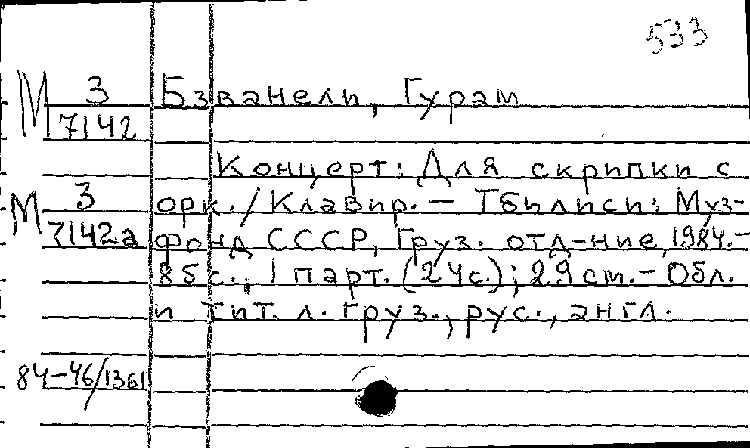 533
М 3 Бзванели, Гурам
7142
Концерт: Для скрипки с
М 3 орк./Клавир. – Тбилиси: Муз-
7142а фонд СССР, Груз. отд-ние, 1984.–
85 с., 1 парт. (24с.); 29 см. – Обл.
и тит. л. груз., рус., англ.
84–46/1361